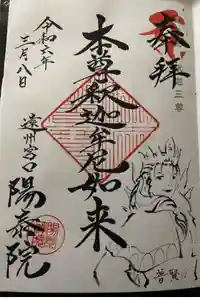 奉拝
三尊
本尊釈迦牟尼如来
令和六年
三月八日
遠州宮口
陽泰院
普賢